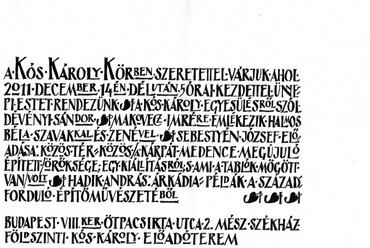 A KÓS KÁROLY KÖRBEN SZERETETTEL VÁRJUK AHOL
2011 DECEMBER 14ÉN DÉLUTÁN 5ÓRAI KEZDETTEL ÜNE
PI ESTET RENDEZÜNK A KÓS KÁROLY EGYESÜLÉSRŐL SZÓL
DÉVÉNYI SÁNDOR MAKOVECZ IMRÉRE EMLÉKEZIK HALMOS
BÉLA SZAVAKKAL ÉS ZENÉVEL SEBESTYÉN JÓZSEF ELŐ
ADÁSA: KÖZÖS TÉR KÖZÖS/A KÁRPÁT MEDENCE MEGÚJULÓ
ÉPÍTETT/ÖRÖKSÉGE; EGY KIÁLLÍTÁSRÓL S AMI A TABLÓK MÖGÖTT
VAN/VOLT HADIK ANDRÁS: ÁRKÁDIA PÉLDÁK A SZÁZAD
FORDULÓ ÉPÍTŐMŰVÉSZETÉBŐL
BUDAPEST VIII. KER ÖTPACSIRTA UTCA 2. MÉSZ SZÉKHÁZ
FÖLDSZINTI KÓS KÁROLY ELŐADÓTEREM